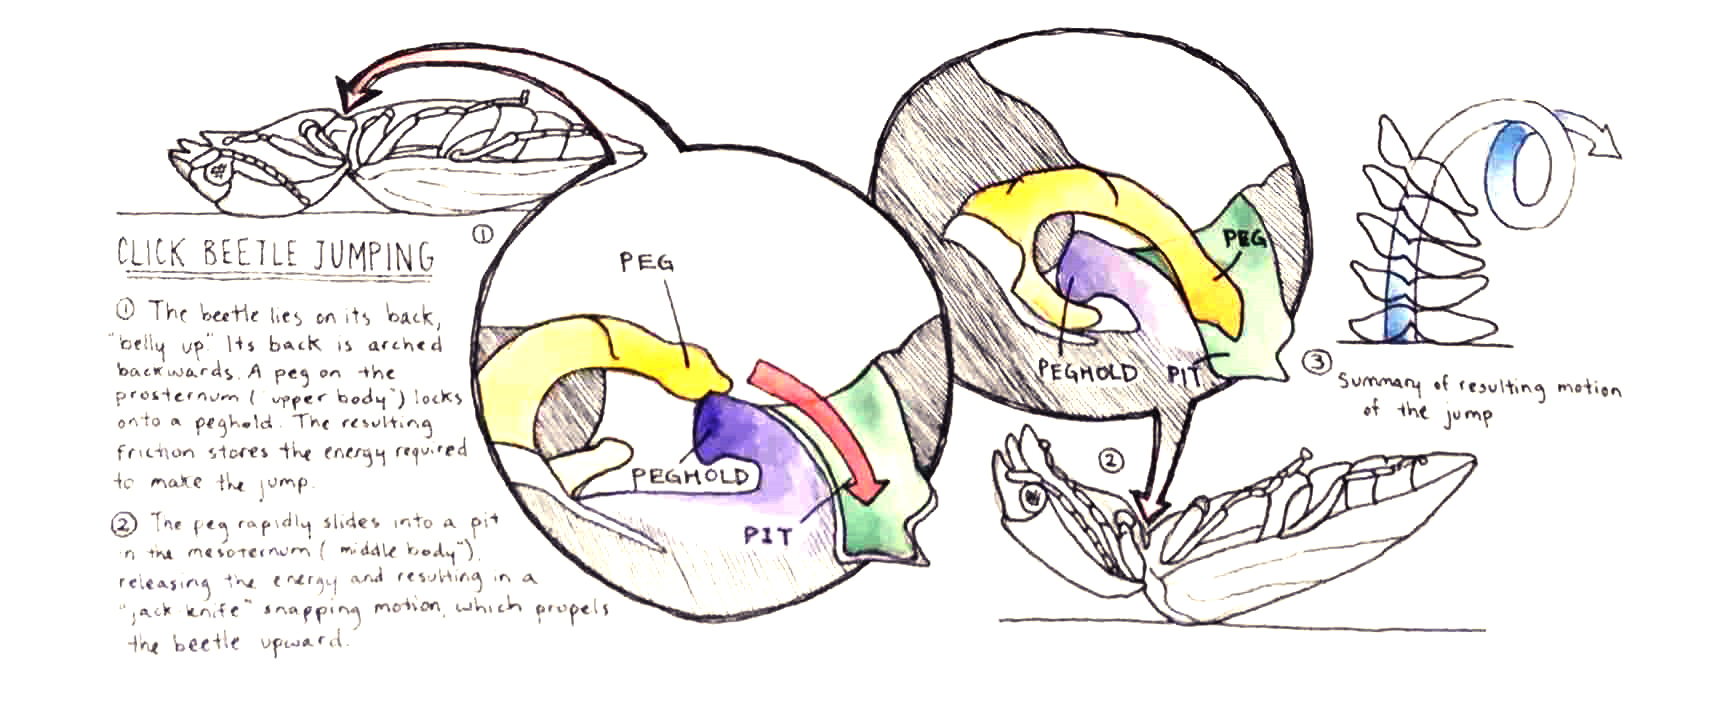 CLICK BEETLE JUMPING
① The beetle lies on its back,
"belly up" Its back is arched
backwards. A peg on the
prosternum ("upper body") locks
onto a peghold. The resulting
friction stores the energy required
to make the jump.
② The peg rapidly slides into a pit
in the mesoternum ("middle body"),
releasing the energy and resulting in a
"jack knife" snapping motion, which propels
the beetle upward.
①
PEG
PEGHOLD
PIT
PEG
PEGHOLD
PIT
②
③
Summary of resulting motion
of the jump